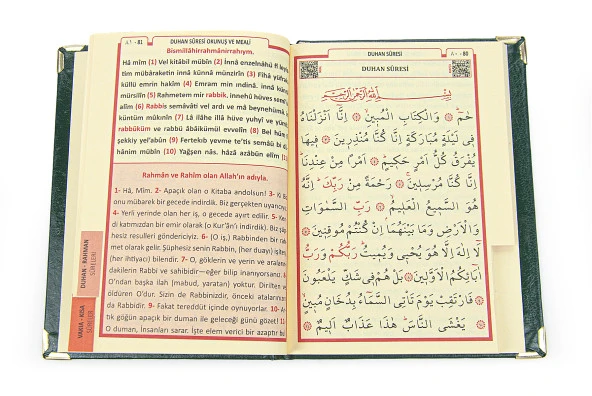 ٨١ - 81 DUHAN SÛRESİ OKUNUŞ VE MEALİ
Bismillâhirrahmânirrahıym.
Hâ mîm (1) Vel kitâbil mübîn (2) İnnâ enzelnâhü fî leyle
tim mübâraketin innâ künnâ münzirîn (3) Fîhâ yüfraku
küllü emrin hakîm (4) Emram min ındinâ. innâ künnâ
mürsilîn (5) Rahmetem mir rabbik. innehû hüves semî
alîm (6) Rabbis semâvâti vel ardı ve mâ beynehümâ.
küntüm mûkınîn (7) Lâ ilâhe illâ hüve yuhyî ve yümît
rabbüküm ve rabbü âbâikümül evvelîn (8) Bel hüm
şekkiy yel'abûn (9) Fertekıb yevme te'tis semâü bi dü
hânim mübîn (10) Yağşen nâs. hâzâ azâbün elîm (11)
Rahmân ve Rahîm olan Allah'ın adıyla.
1- Hâ, Mîm. 2- Apaçık olan o Kitaba andolsun! 3- Ki Biz
onu mübarek bir gecede indirdik. Biz gerçekten uyarıcı
4- Yerli yerinde olan her iş, o gecede ayırt edilir. 5- Ken
di katımızdan bir emir olarak (o Kur'ân'ı indirdik). Biz şüp
hesiz resulleri göndericiyiz. 6- (O iş,) Rabbinden bir rah
met olarak gelir. Şüphesiz senin Rabbin, (her duayı) işiten
(her ihtiyacı) bilendir. 7- O, göklerin ve yerin ve araların
dakilerin Rabbi ve sahibidir—eğer bilip inanıyorsanız.
O'ndan başka ilah (mabud, yaratan) yoktur. Diriltir ve
öldüren O'dur. Sizin de Rabbinizdir, önceki atalarınızın
da Rabbidir. 9- Fakat tereddüt içinde oynuyorlar. 10- Ar
tık göğün apaçık bir duman ile geleceği günü gözet!
O duman, İnsanları sarar. İşte elem verici bir azaptır bu
DUHAN - RAHMAN
SÛRELERİ
VAKIA - KISA
SÛRELER
DUHAN SÛRESİ ٨٠ - 80
DUHAN SÛRESİ
بِسْمِ اللّٰهِ الرَّحْمٰنِ الرَّحِيمِ
حٰمٓ ۞ وَالْكِتَابِ الْمُبِينِ ۞ اِنَّٓا اَنْزَلْنَاهُ
فِي لَيْلَةٍ مُبَارَكَةٍ اِنَّا كُنَّا مُنْذِرِينَ ۞ فِيهَا
يُفْرَقُ كُلُّ اَمْرٍ حَكِيمٍ ۞ اَمْرًا مِنْ عِنْدِنَا
اِنَّا كُنَّا مُرْسِلِينَ ۞ رَحْمَةً مِنْ رَبِّكَ اِنَّهُ
هُوَ السَّمِيعُ الْعَلِيمُ ۞ رَبِّ السَّمٰوَاتِ
وَالْاَرْضِ وَمَا بَيْنَهُمَا اِنْ كُنْتُمْ مُوقِنِينَ ۞
لَٓا اِلٰهَ اِلَّا هُوَ يُحْيِي وَيُمِيتُ رَبُّكُمْ وَرَبُّ
اٰبَٓائِكُمُ الْاَوَّلِينَ ۞ بَلْ هُمْ فِي شَكٍّ يَلْعَبُونَ
فَارْتَقِبْ يَوْمَ تَأْتِي السَّمَٓاءُ بِدُخَانٍ مُبِينٍ ۞
يَغْشَى النَّاسَ هٰذَا عَذَابٌ اَلِيمٌ ۞